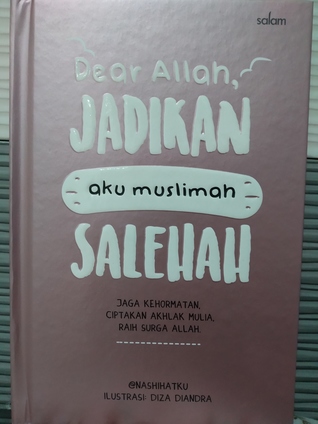 salam
Dear Allah,
JADIKAN
aku muslimah
SALEHAH
JAGA KEHORMATAN,
CIPTAKAN AKHLAK MULIA,
RAIH SURGA ALLAH.
@NASHIHATKU
ILUSTRASI: DIZA DIANDRA